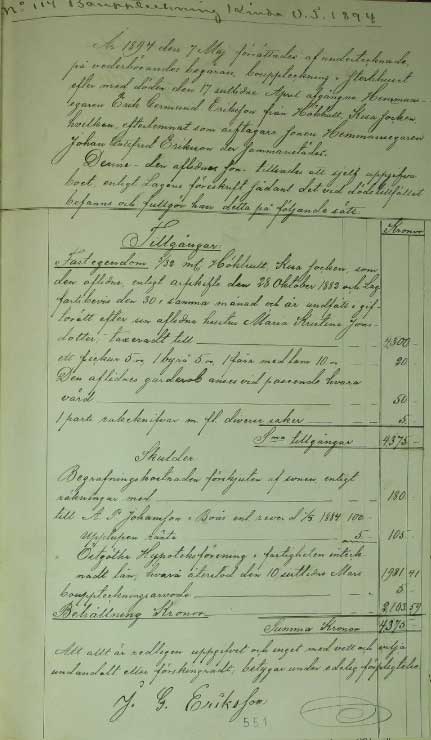 No 114 Bouppteckning Kinda D.S. 1894
År 1894 den 7 Maj förrättades af undertecknade,
på vederbörandes begäran, bouppteckning i sterbhuset
efter med döden den 17 sistlidne April afgångne Hemmans-
egaren Erik Germund Eriksson från Höhult, Kisa socken,
hvilken, efterlemnat som arftagare sonen Hemmansegaren
Johan Gottfrid Eriksson derstammastädes.
Denne den aflidnes son, tillsades att sjelf uppgifva
boet, enligt Lagens föreskrift sådant det vid dödstillfället
befanns och fullgör han detta på följande sätt:
Kronor
Tillgångar:
Fast egendom 5/32 mtl Höhult, Kisa socken, som
den aflidne, enligt arfskifte den 28 Oktober 1882 och Lag-
fartsbevis den 30 i samma månad och år undfått i gif-
torätt efter sin aflidna hustru Maria Kristina Jons-
dotter, taxeradt till 4,300 -
ett fickur 5 -, 1 byrå 5 -, 1 fåra med lam 10 - 20 -
Den aflidnes garderob anses vid pass ende hvara
värd 50 -
1 parti rakeknifvar m. fl. diverse saker 5 -
Sma tillgångar 4,375 -
Skulder
Begrafningskostnaden förskjuten af sonen enligt
räkningar med 180 -
till A. P. Johansson i Boda enl. revers d. 1/5 1884 100 -
Upplupen ränta 5 - 105 -
Östgötha Hypoteksförening i fastigheten inteck-
nadt lån, hvarå återstod den 10 sistlidne Mars 1,981 41
bouppteckningsarvode 5 -
Behållning Kronor 2,103 59
Summa Kronor 4375 -
Att allt är redligen uppgifvet och inget med vett och vilja
undandolt eller förskingradt, betygar under edelig förpligtelse
J. G. Eriksson
551